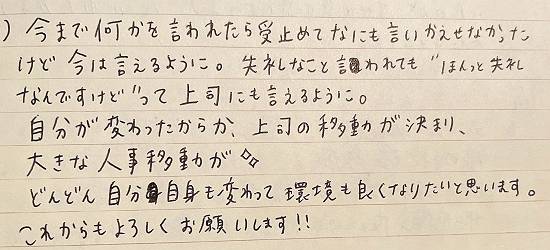 ) 今まで何かを言われたら受止めてなにも言いかえせなかった
けど 今は言えるように。失礼なこと言われても "ほんっと失礼
なんですけど" って 上司にも言えるように。
自分が変わったからか、上司の移動が決まり、
大きな人事移動が
どんどん 自分自身も変わって 環境も良くなりたいと思います。
これからもよろしくお願いします!!